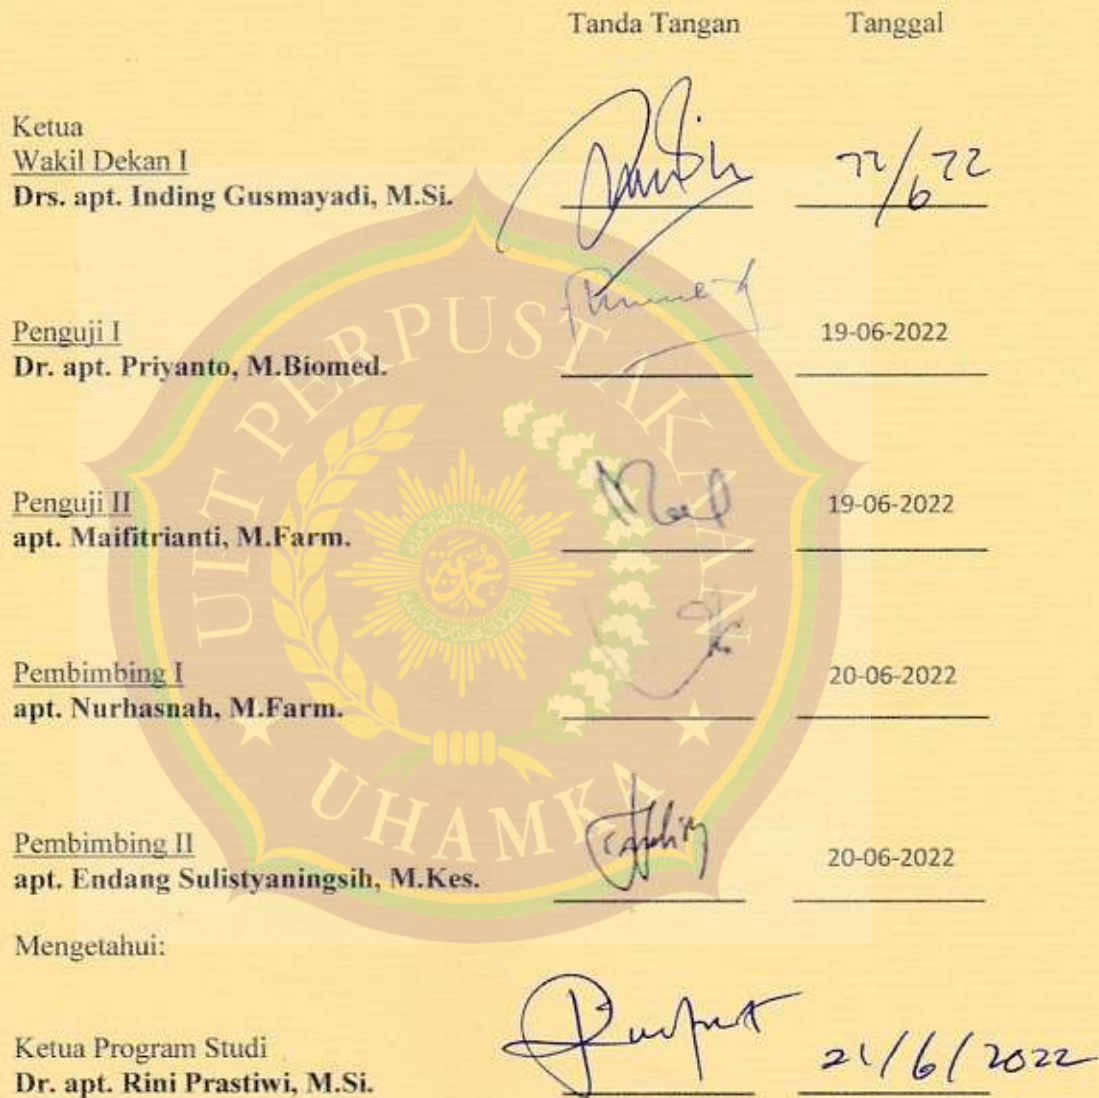 Tanda Tangan Tanggal
Ketua
Wakil Dekan I
Drs. apt. Inding Gusmayadi, M.Si.
22/6 22
Penguji I
Dr. apt. Priyanto, M.Biomed.
19-06-2022
Penguji II
apt. Maifitrianti, M.Farm.
19-06-2022
Pembimbing I
apt. Nurhasnah, M.Farm.
20-06-2022
Pembimbing II
apt. Endang Sulistyaningsih, M.Kes.
20-06-2022
Mengetahui:
Ketua Program Studi
Dr. apt. Rini Prastiwi, M.Si.
21/6/2022
UIT PERPUSTAKAAN
UHAMKA